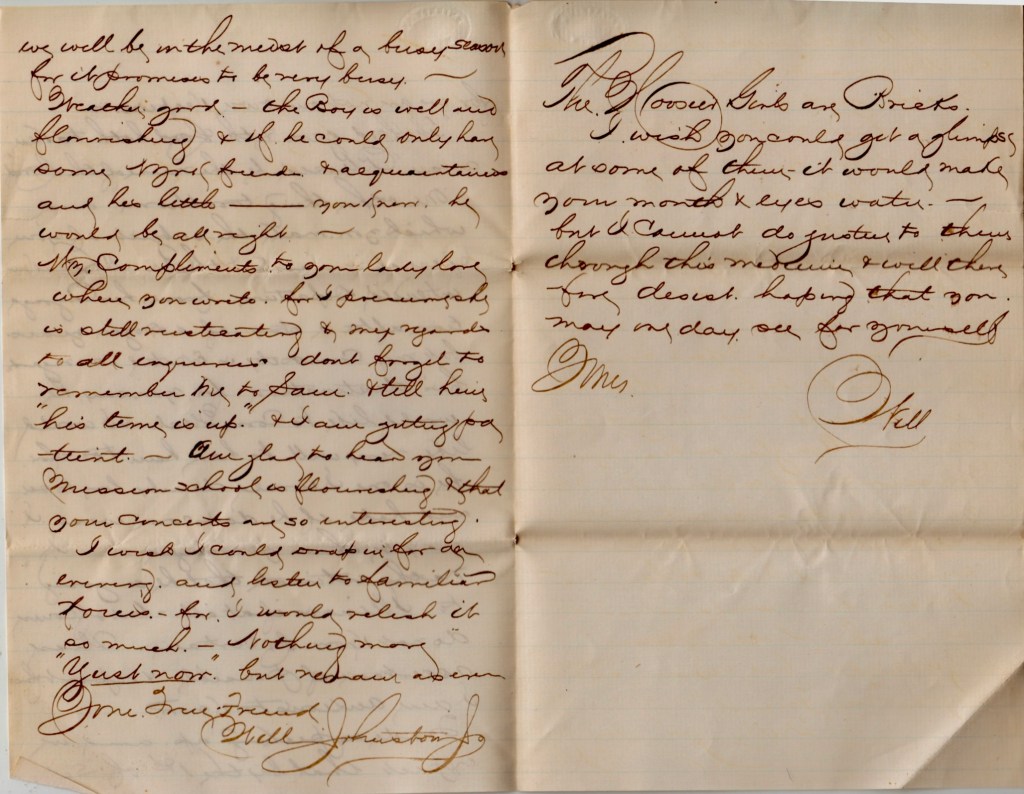 we will be in the midst of a busy season
for it promises to be very busy. —
Weather good — the Boy is well and
flourishing & if he could only have
some N York friends & acquaintances
and his little —— you know. he
would be all right —
My Compliments to your lady love
when you write. for I presume she
is still rusticating & my regards
to all enquiries dont forget to
remember me to Sam & tell him
"his time is up." & I am getting pa
tient. — Am glad to hear your
Mission school is flourishing & that
your Concerts are so interesting.
I wish I could drop in for an
evening. and listen to familiar
voices. — for. I would relish it
so much. — Nothing more
"Just now." but remain as ever
Your True Friend
Will Johnston Jr
The Hoosier Girls are Bricks.
I wish you could get a glimpse
at some of them — it would make
your mouth & eyes water. —
but I Cannot do justice to them
through this medium & will there
fore desist. hoping that you.
may one day see for yourself
Yours.
Will